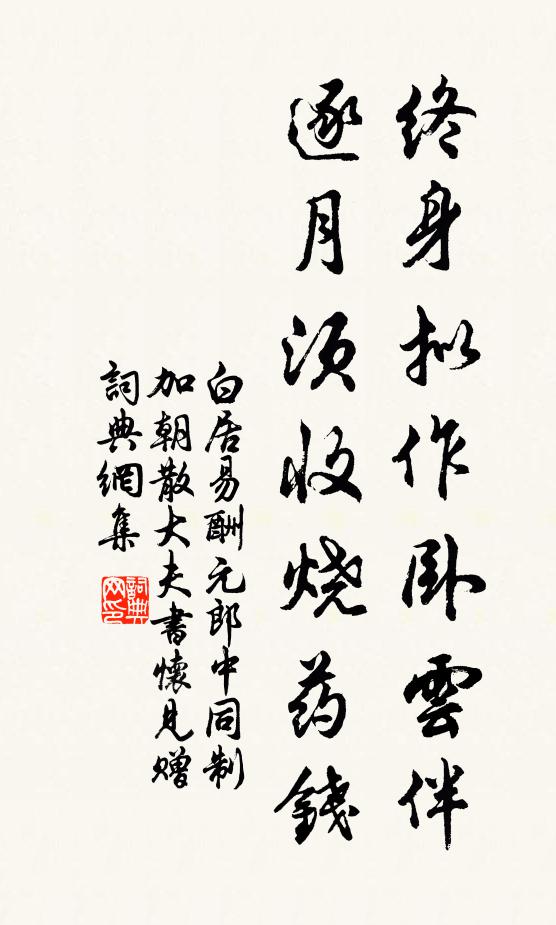 终身拟作卧雲伴
逐月须收烧药錢
白居易酬元郎中同制
加朝散大夫書懷見赠
詞典網集
詞典
网印